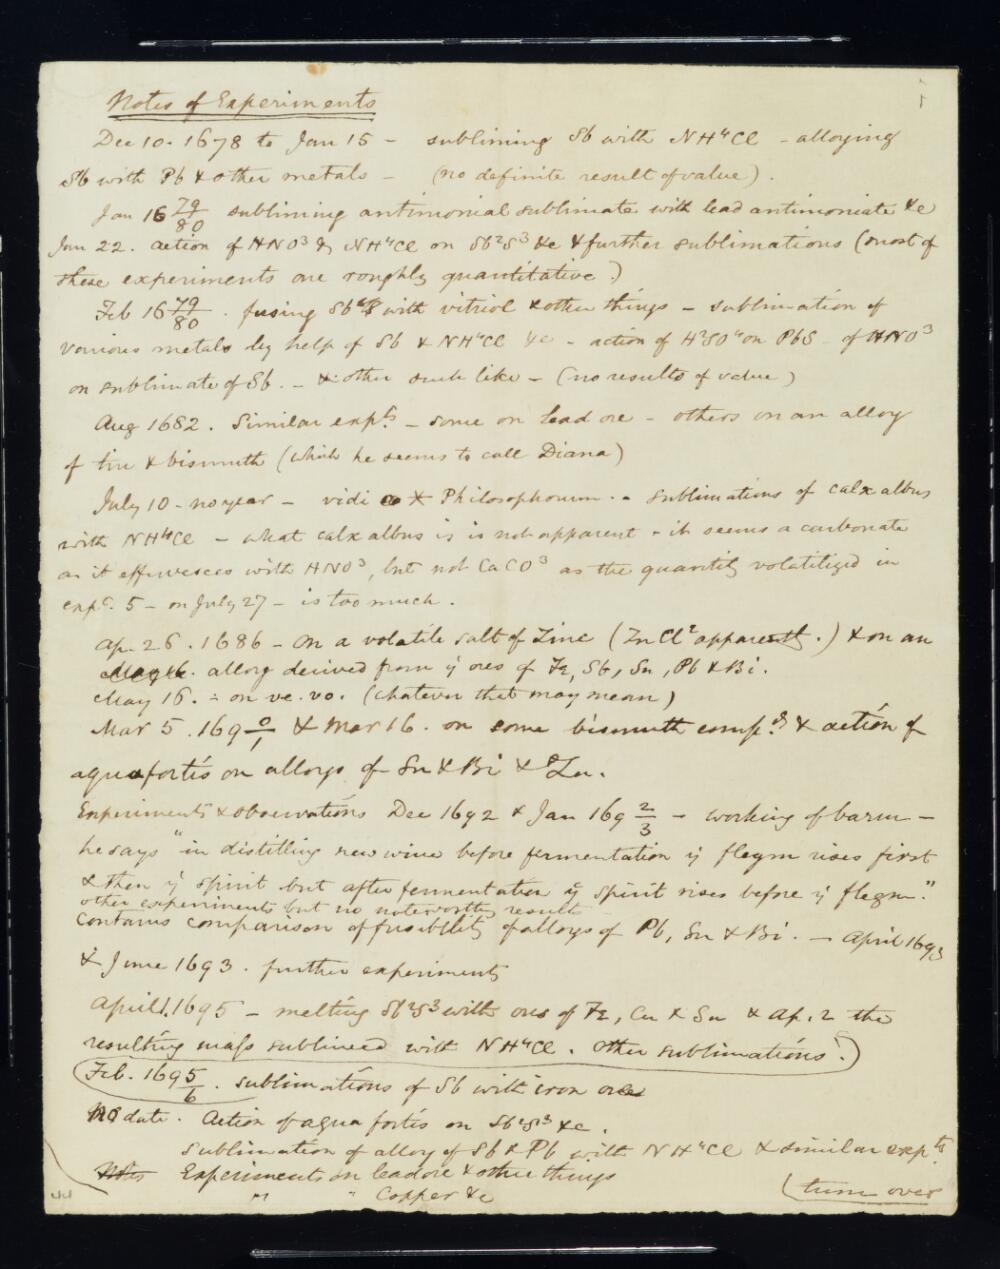 Notes of Experiments
Dec 10. 1678 to Jan 15 – subliming Sb with NH⁴Cl – alloying
Sb with Pb & other metals – (no definite result of value).
Jan 16 79/80 sublining antimonial sublimate with lead antimoniate &c
Jan 22. action of HNO³ & NH⁴Cl on Sb²S³ &c & further sublimations (most of
these experiments are roughly quantitative)
Feb 16 79/80. fusing Sb with vitriol & other things – sublimation of
various metals by help of Sb & NH⁴Cl &c – action of H²SO⁴ on PbS – of HNO³
on sublimate of Sb. – & other such like – (no results of value)
Aug 1682. Similar expts. – some on lead ore – others on an alloy
of tin & bismuth (which he seems to call Diana)
July 10 – no year – vidi * Philosophorum. – sublimations of calx albus
with NH⁴Cl – what calx albus is is not apparent – it seems a carbonate
as it effervesces with HNO³, but not CaCO³ as the quantity volatilized in
expt. 5 – on July 27 – is too much.
Ap. 26. 1686 – On a volatile salt of Zinc (ZnCl² apparently.) & on an
alloy derived from yͤ ores of Fe, Sb, Sn, Pb & Bi.
May 16. – on ve. vo. (whatever that may mean)
Mar 5. 169 0/1 & Mar 16. on some bismuth compds & action of
aquafortis on alloys of Sn & Bi & Zn.
Experiments & observations Dec 1692 & Jan 169 2/3 – working of barm –
he says "in distilling new wine before fermentation yͤ flegm rises first
& then yͤ spirit but after fermentation yͤ spirit rises before yͤ flegm."
other experiments but no noteworthy results
Contains comparison of fusibility of alloys of Pb, Sn & Bi. – April 1693
& June 1693. further experiments
April 1695 – melting Sb²S³ with ores of Fe, Cu & Sn & Ap. 2 the
resulting mass sublimed with NH⁴Cl. other sublimations.)
Feb. 169 5/6. sublimations of Sb with iron ores
No date. Action of aqua fortis on Sb²S³ &c.
Sublimation of alloy of Sb & Pb with NH⁴Cl & similar expts
Notes Experiments on lead ore & other things
" " Copper &c
(turn over